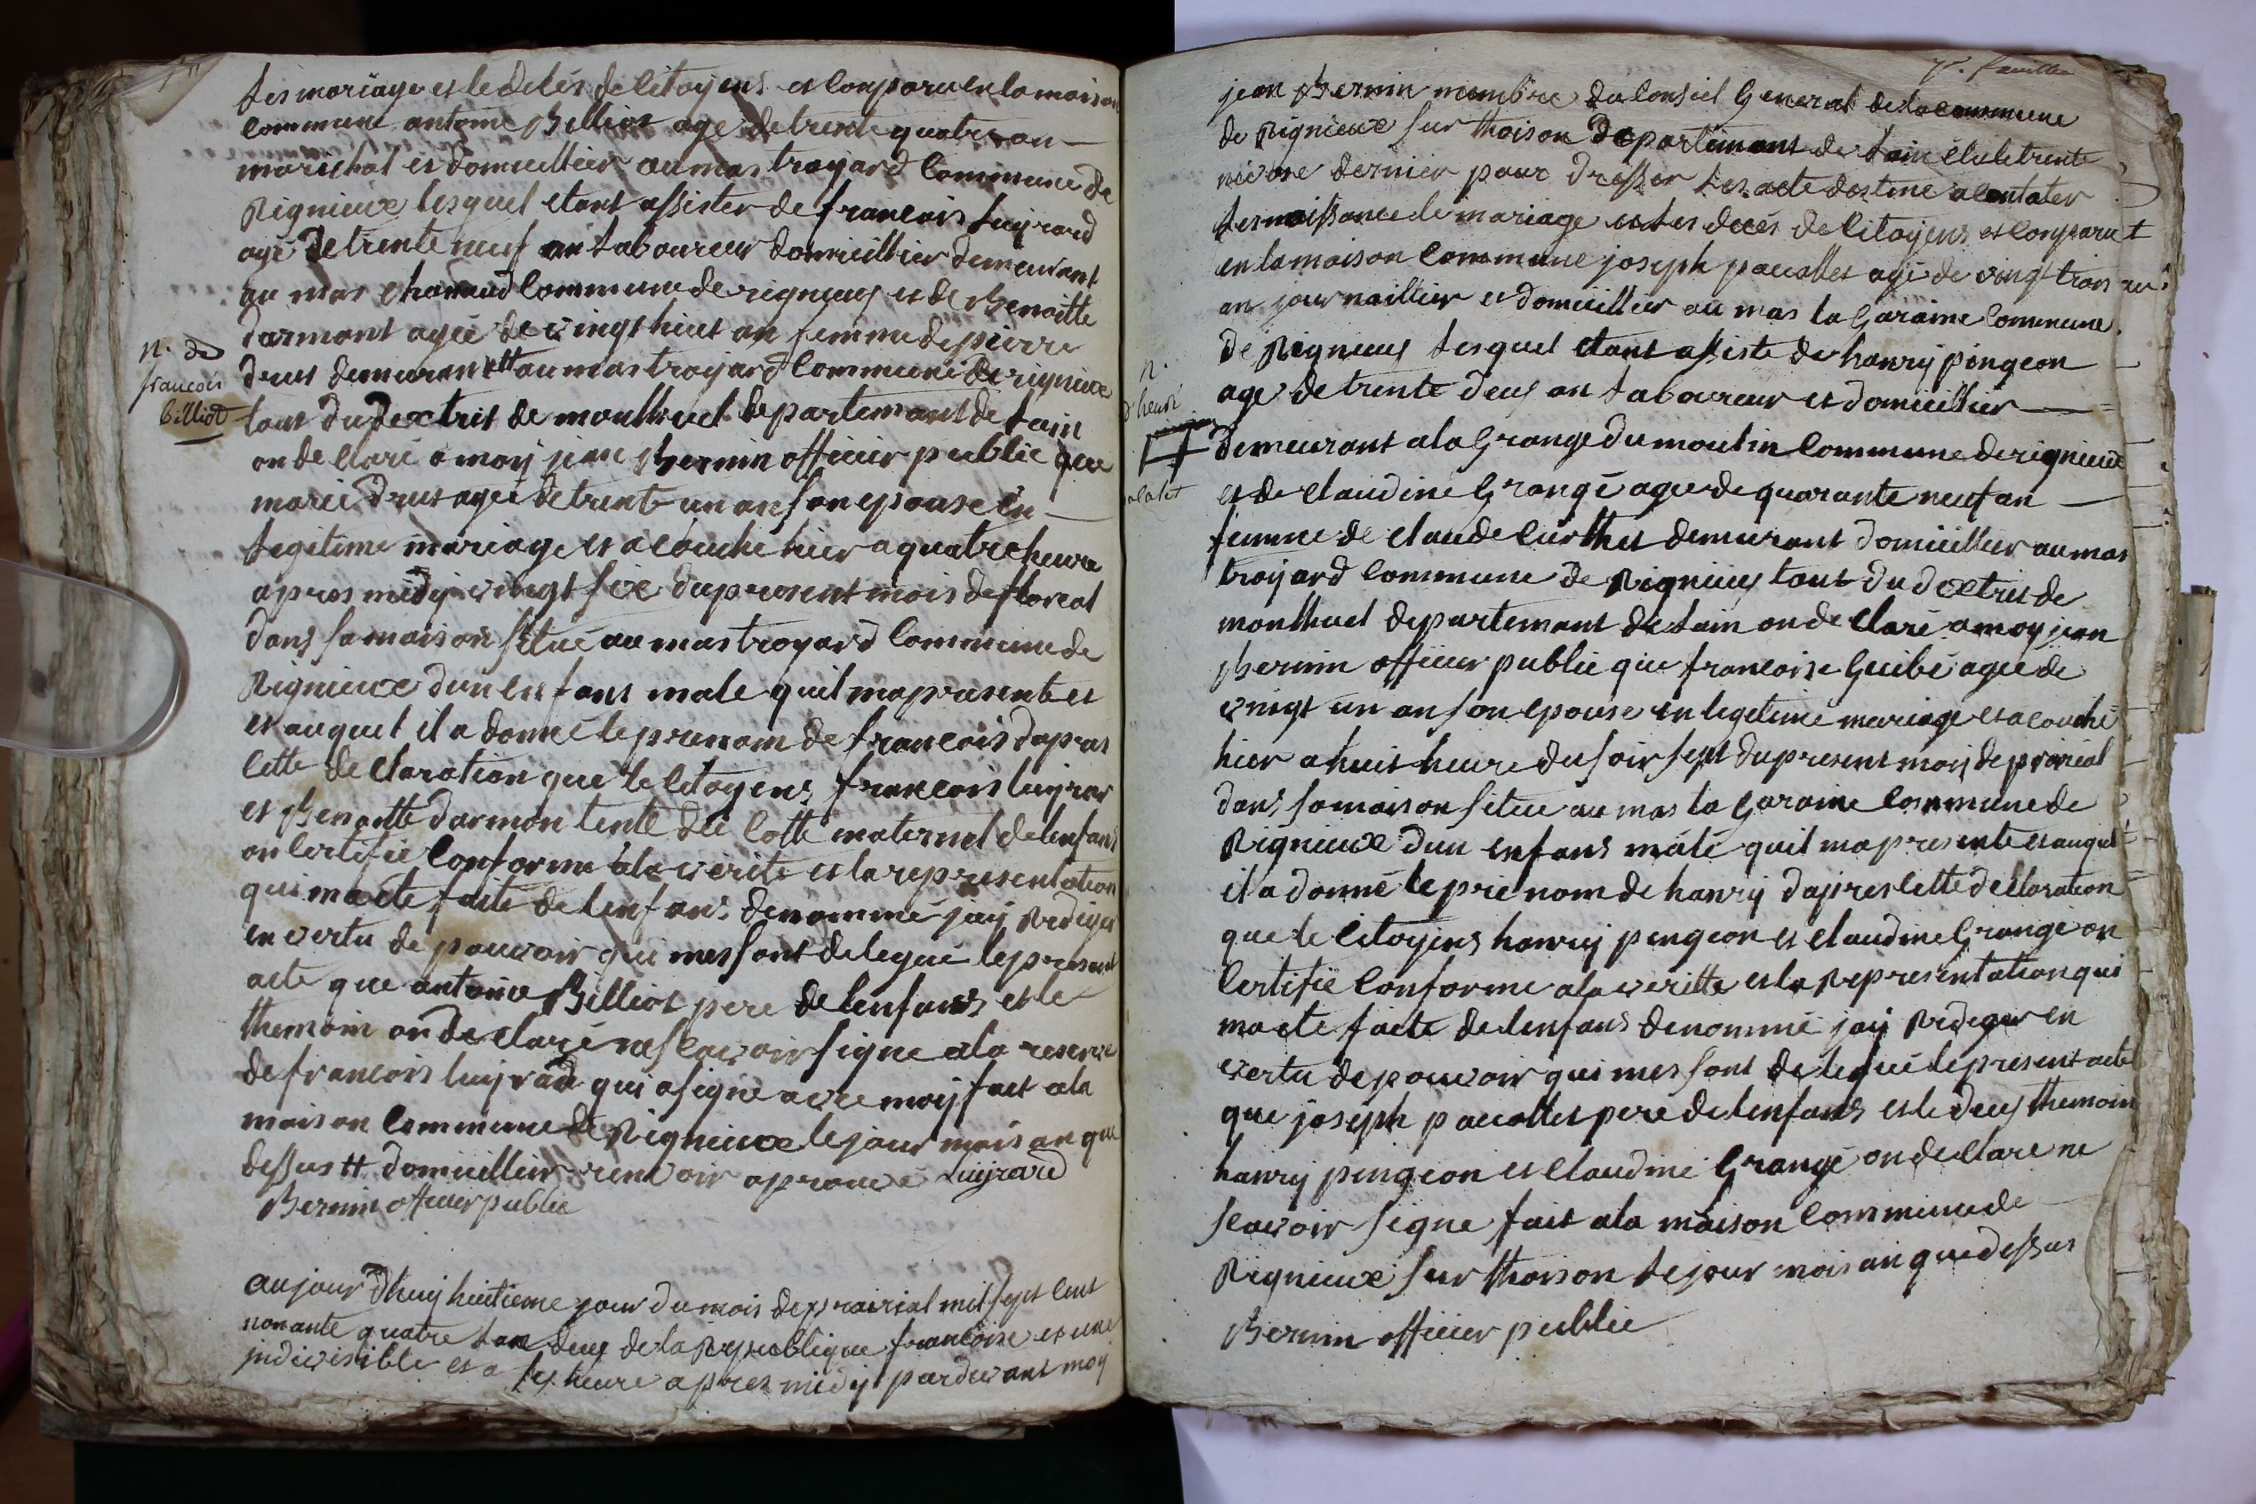 les mariage et le deces de citoyens et conparu en la maison
commune antoine Billiot age de trente quatre an
marichal et domicillier au mas troyard commune de
Rignieux lesquel etant assister de francois luyrard
agé de trente neuf an laboureur domicillier demeurant
au mas commune de rignieux et de Benoitte
darmont agée de vingt huit an femme de pierre
drut demeurant # au mas troyard commune de rignieux
tout du dextrit de montluel departemant de lain
on declaré a moy jean Bernin officier public que
marie drut agée de trente un an son epouse en
legitime mariage et acouché hier a quatre heure
apres midy vingt six du present mois de floreal
dans sa maison situé au mas troyard commune de
Rignieux dun enfans male quil ma presente et
et auquel il a donné le prenom de francois dapres
cette declaration que le citoyens francois luyrar
et Benoitte darmon tente du cotté maternel de lenfans
on certifié conforme a la verite et la representation
qui ma ete faite de lenfans denommé jay Rediger
en vertu de pouvoir qui mes sont delegué le present
acte que antoine Billiot pere de lenfans et le
themoin on declaré ne scavoir signe a la reserve
de francois luyrad qui a signe avec moy fait a la
maison commune de Rignieux le jour mois an que
dessus # domicillier renvoir aprouvé Luyrard
Bernin officier public
n. de
francois
billiot
aujourdhuy huitieme jour du mois de prairial mil sept cent
nonante quatre lan deux de la Republique francoise et une
indivisible et a six heure apres midy pardevant moy
7e. feuillet
jean Bernin membre du conseil General de la commune
de Rignieux sur thoison departemant de lain elu le trente
nivose dernier pour dresser les acte destiné a contater
les naissance le mariage et les deces de citoyens et conparut
en la maison commune joseph pacallet agé de vingt trois an
an journaillier et domicillier au mas la Garaine commune
de Rignieux lesquel etant assisté de hanry pingeon
age de trente deux an laboureur et domicillier
demeurant a la Grange du moulin commune de rignieux
et de claudine Grangé agee de quarante neuf an
femme de claude curthet demeurant domicillier au mas
troyard commune de Rignieux tout du dextrit de
montluel departemant de lain on declaré a moy jean
Bernin officier public que francoise Guibé agée de
vingt un an son epouse en legitime mariage et acouché
hier a huit heure du soir sept du present moy de prairial
dans sa maison situe au mas la Garaine commune de
Rignieux dun enfans mâlé quil ma presente et auquel
il a donné le prenom de hanry dapres cette declaration
que le citoyens hanry pingeon et claudine Grange on
certifié conforme a la veritte et la Representation qui
ma ete faite de lenfans denommé jay Rediger en
vertu de pouvoir qui mes sont delegué le present acte
que joseph pacallet pere de lenfans et le deux themoin
hanry pingeon et claudine Grange on declare ne
scavoir signe fait a la maison commune de
Rignieux sur thoison le jour mois an que dessus
Bernin officier public
n.
d'henri